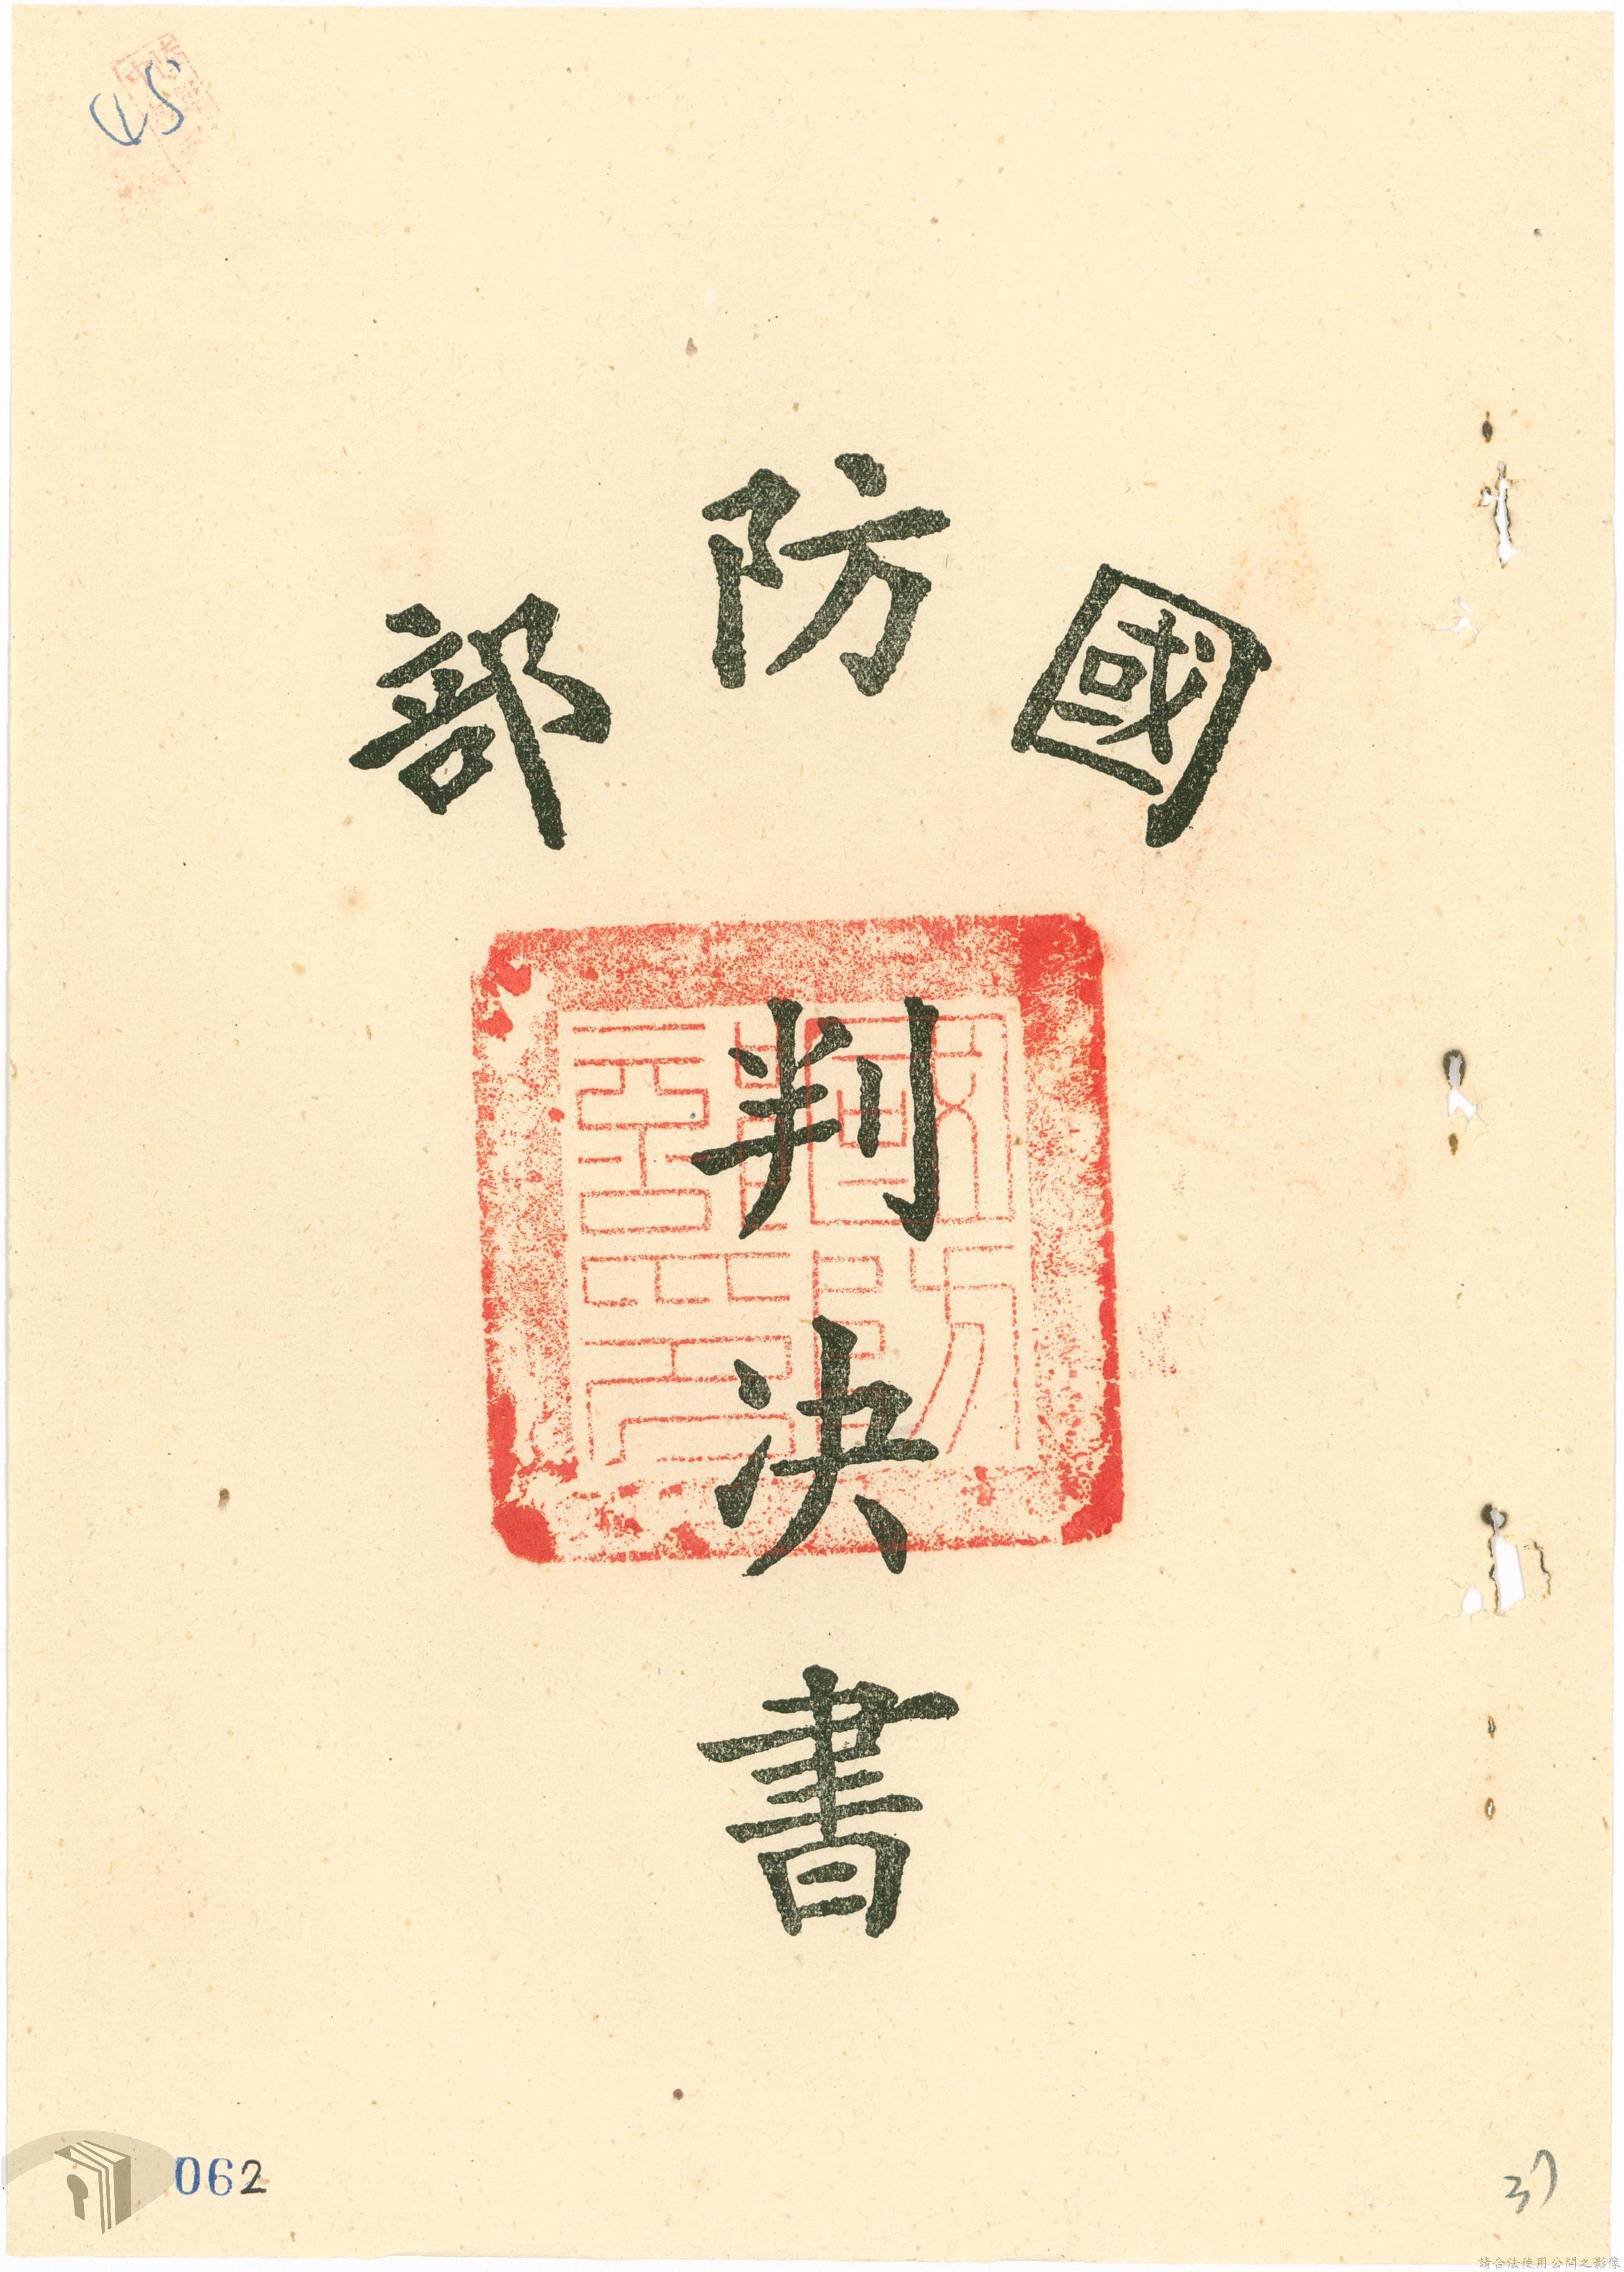 45
國防部
判決書
062
37
請合法使用公開之影像